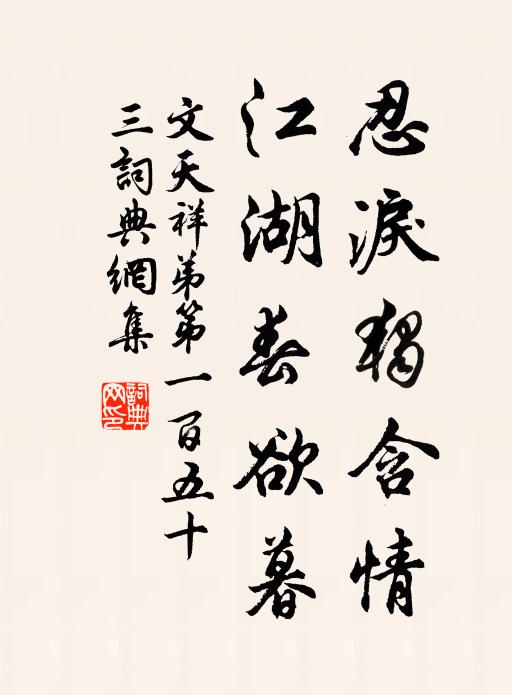 忍淚獨含情
江湖春欲暮
文天祥弟第一百五十
三詞典網集
詞典網印